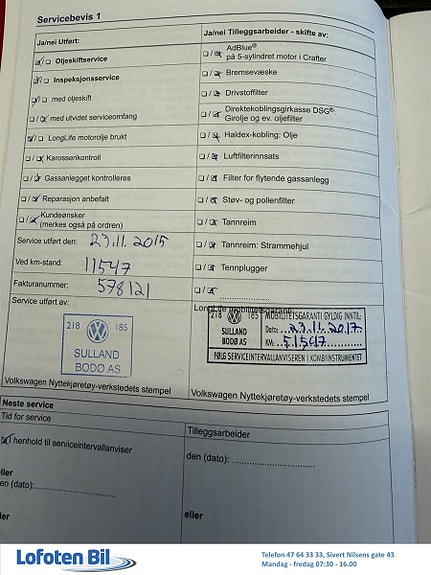 Servicebevis 1
Ja/nei Utført:
Oljeskiftservice
Inspeksjonsservice
med oljeskift
med utvidet serviceomfang
LongLife motorolje brukt
Karosserikontroll
Gassanlegget kontrolleres
Reparasjon anbefalt
Kundeønsker
(merkes også på ordren)
Service utført den: 23.11.2015
Ved km-stand: 11547
Fakturanummer: 578121
Service utført av:
218 185
SULLAND
BODØ AS
Volkswagen Nyttekjøretøy-verkstedets stempel
Ja/nei Tilleggsarbeider - skifte av:
AdBlue®
på 5-sylindret motor i Crafter
Bremsevæske
Drivstoffilter
Direktekoblingsgirkasse DSG®:
Girolje og ev. oljefilter
Haldex-kobling: Olje
Luftfilterinnsats
Filter for flytende gassanlegg
Støv- og pollenfilter
Tannreim
Tannreim: Strammehjul
Tennplugger
218 185
SULLAND
BODØ AS
MOBILITETSGARANTI GYLDIG INNTIL:
Dato: 23.11.2017
KM: 51547
FØLG SERVICEINTERVALLANVISEREN I KOMBIINSTRUMENTET
Volkswagen Nyttekjøretøy-verkstedets stempel
Neste service
Tid for service
I henhold til serviceintervallanviser
eller
den (dato):
Tilleggsarbeider
den (dato):
eller
Lofoten Bil
Telefon 47 64 33 33, Sivert Nilsens gate 43
Mandag - fredag 07:30 - 16.00